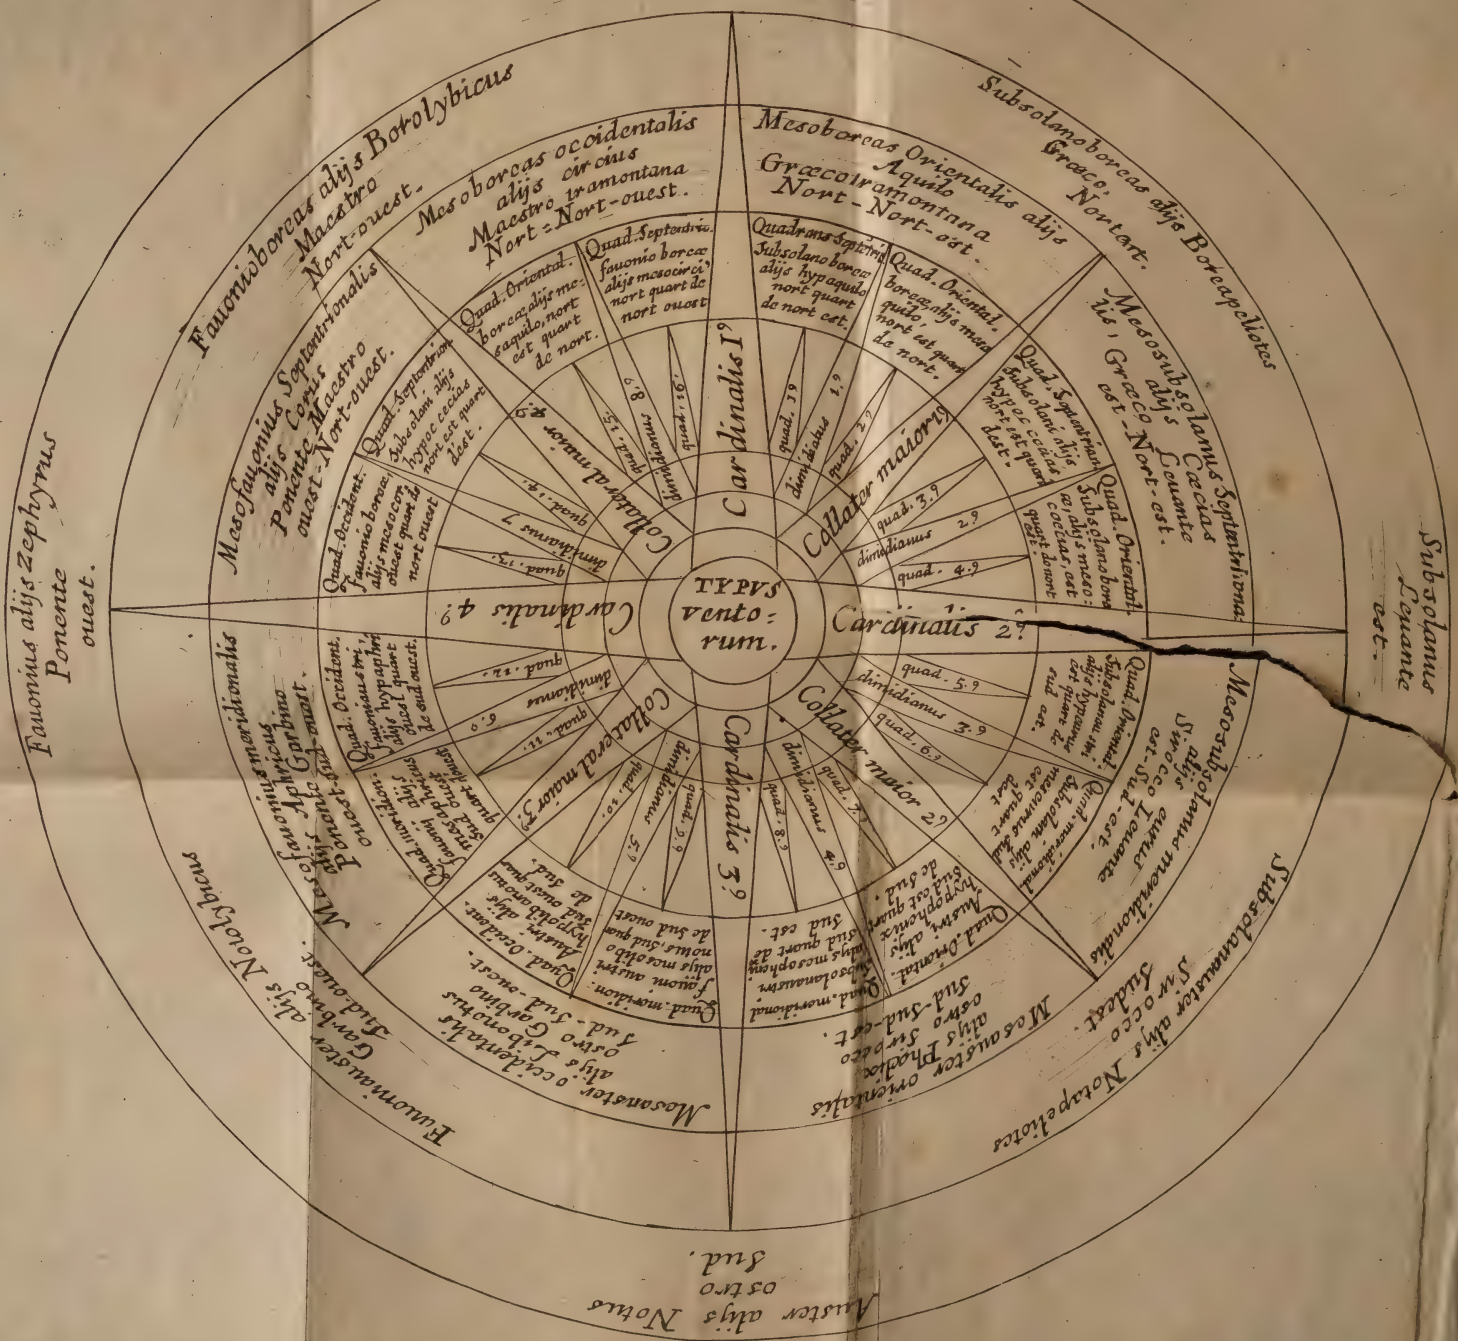 TYPVS
vento=
rum.
Cardinalis I⁹
Collater maior 1⁹
Cardinalis 2⁹
Collater maior 2⁹
Cardinalis 3⁹
Collateral maior 3⁹
Cardinalis 4⁹
Collateral maior 4⁹
quad. 1⁹
dimidiatus 1.⁹
quad. 2⁹
quad. 3.⁹
dimidianus 2.⁹
quad. 4.⁹
quad. 5.⁹
dimidianus 3.⁹
quad. 6.⁹
quad. 7.⁹
dimidianus 4.⁹
quad. 8.⁹
quad. 9.⁹
dimidianus 5.⁹
quad. 10.
quad. 11.
dimidianus 6.⁹
quad. 12.
quad. 13.
dimidianus 7
quad. 14.
quad. 15.
dimidianus 8.⁹
quad. 16.
Quadrans Septetrio
Subsolano boreæ
alijs hypaquilo
nort quart
de nort est.
Quad. Oriental.
boreæ, alijs mesa
quilo,
nort est quart
de nort.
Quad. Septentrion
Subsolani alijs
hypoc cæcias
nort est quart
dest.
Quad. Oriental.
Subsolanobore
æ, alijs meso=
cæcias, est
quart de nort
est.
Quad. Oriental.
Subsolanaustri
alijs hypeurus
est quart de
sud est.
Quad. meridional
Subsolani, alijs
meseurus sud
est quart
dest
Quad. Oriental.
Austri, alijs
hypophenix
sud est quart
de sud.
Quad. meridional
Subsolanaustri
alijs mesophenix
sud quart de
sud est.
Quad. meridion.
fauoni austri
alijs mesolibo
notus, sud quar
de sud ouest
Quad. Occident.
Austri, alijs
hypolibanotus
sud ouest quar
de sud.
Quad. meridion.
fauonij alijs
mesaphricus
sud ouest
quart douest
Quad. Occident.
fauoniaustri,
alijs hypaphri
ouest quart
de sud ouest.
Quad. Occident.
Fauonio boreæ
alijs mesocor,
ouest quart de
nort ouest
Quad. Septentrion
Subsolani alijs
hypoc cecias
nort est quart
dest.
Quad. Oriental.
boreæ alijs me=
saquilo, nort
est quart
de nort.
Quad. Septentrio.
fauonio boreæ
alijs mesocirci⁹
nort quart de
nort ouest
Mesoboreas Orientalis alijs
Aquilo
Græcotramontana
Nort-Nort-est.
Mesosubsolanus Septentriona
lis, alijs Cæcias
Græco Leuante
est-Nort-est.
Mesosubsolanus meridionalis
alijs eurus
Sirocco Leuante
est-Sud-est.
Mesauster orientalis
alijs Phœnix
ostro Sirocco
Sud-Sud-est.
Mesauster occidentalis
alijs Libonotus
ostro Garbino
Sud-Sud-ouest.
Mesofauonius meridionalis
alijs Aphricus
Ponente Garbino
ouest Sud ouest.
Mesofauonius Septentrionalis
alijs Corus
Ponente Maestro
ouest-Nort-ouest.
Mesoboreas occidentalis
alijs circius
Maestro tramontana
Nort=Nort-ouest.
Subsolanoboreas alijs Boreapeliotes
Græco,
Nortart.
Subsolanus
Leuante
est-
Subsolanauster alijs Notapeliotes
Sirocco
Sudest.
Auster alijs Notus
ostro
Sud.
Fauoniauster
alijs Notolybicus
Garbino
Sud-ouest.
Fauonius alijs Zephyrus
Ponente
ouest.
Fauonioboreas alijs Borolybicus
Maestro
Nort-ouest.